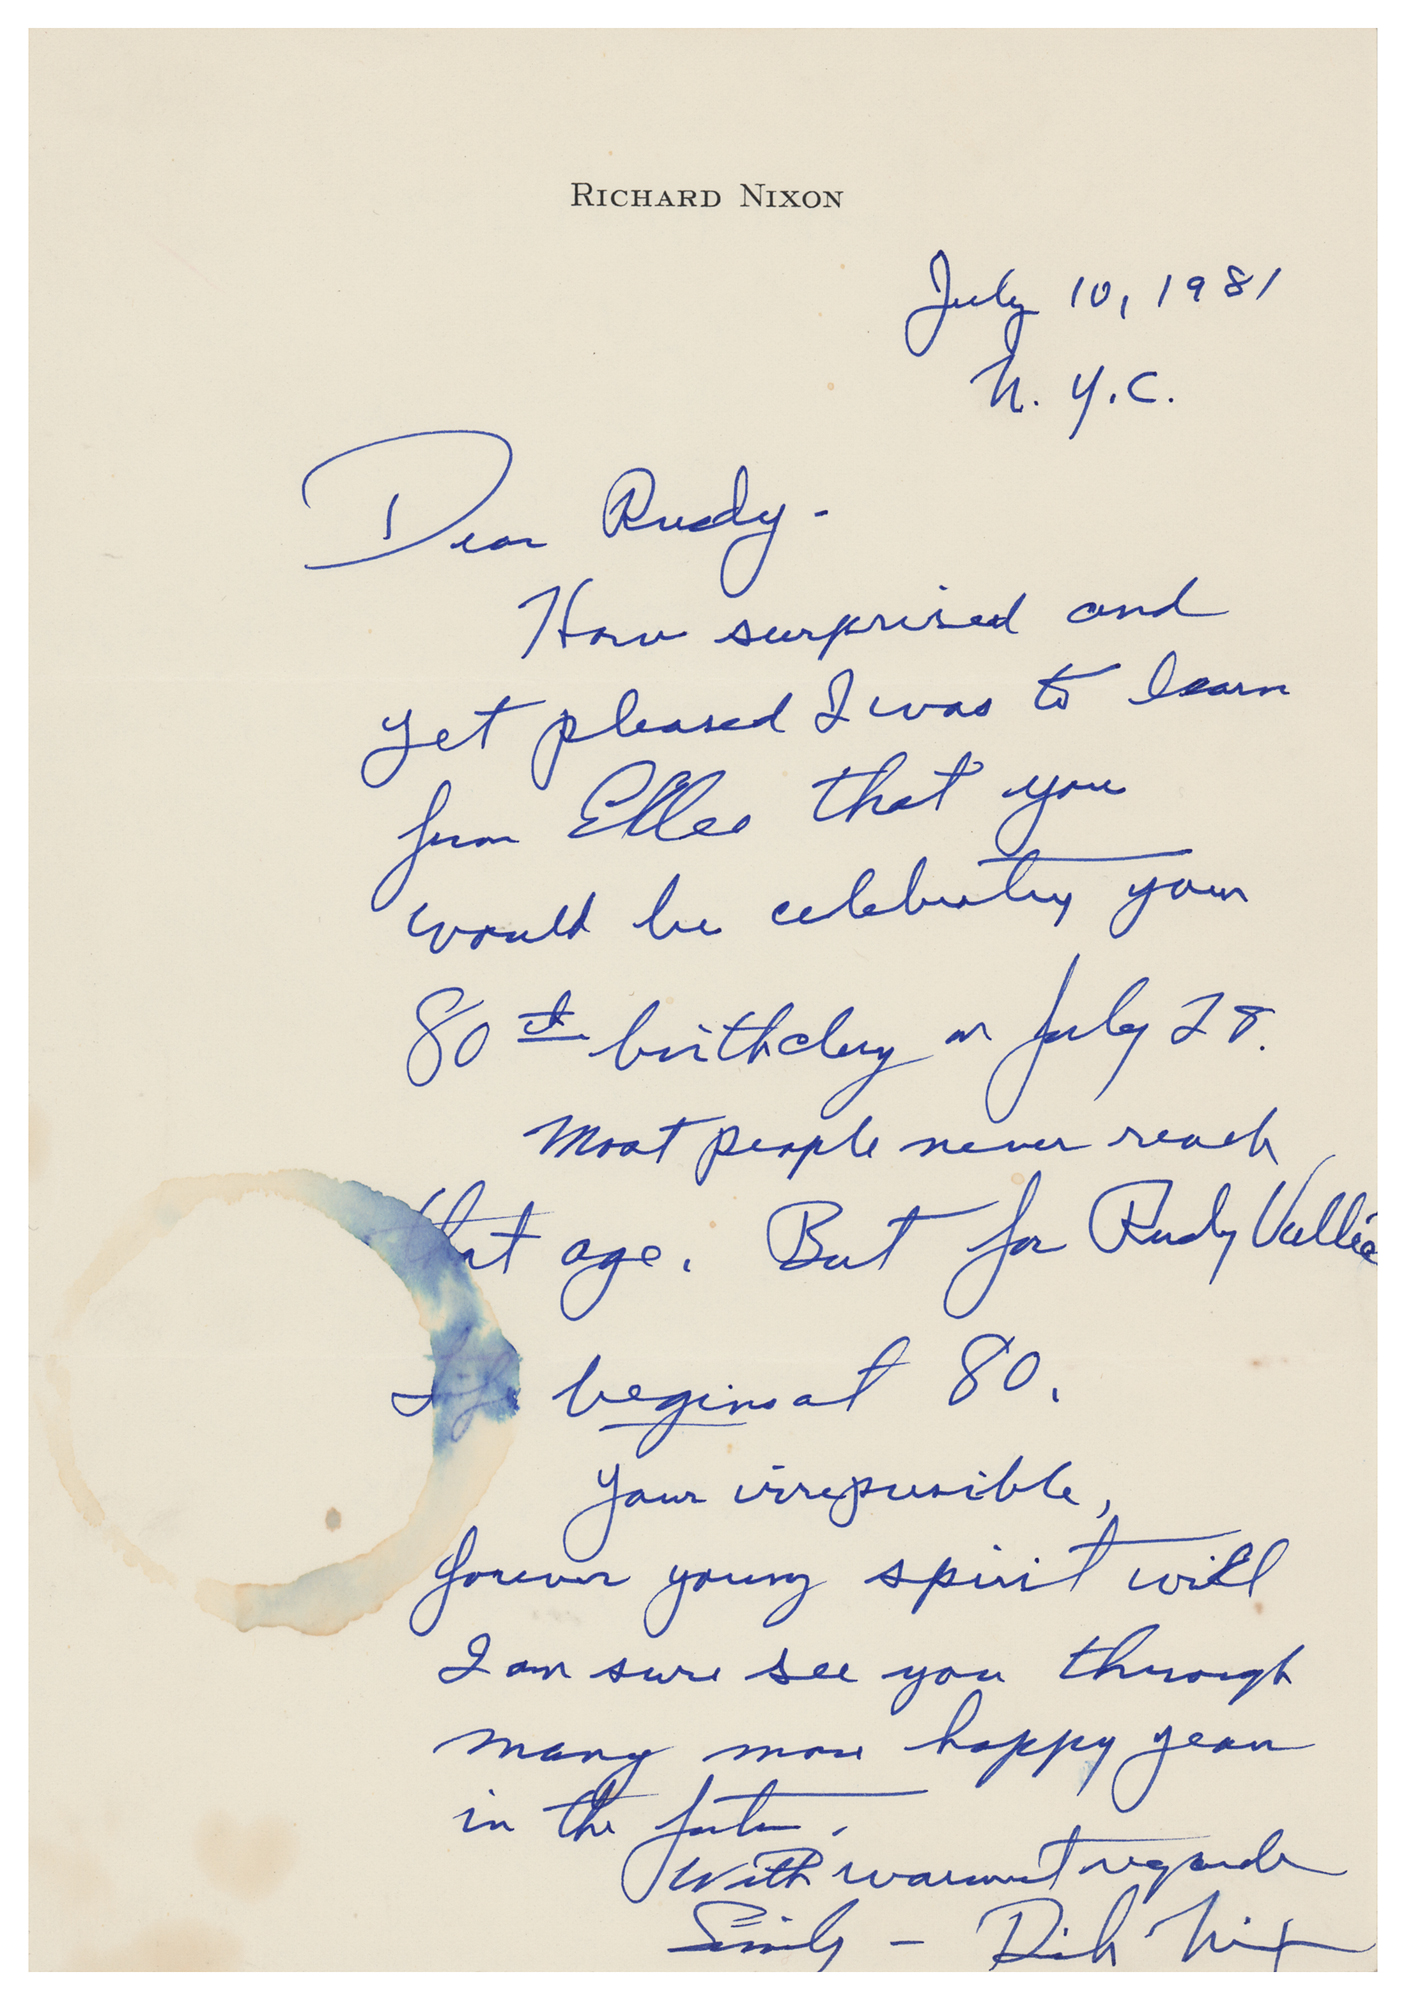 RICHARD NIXON
July 10, 1981
N.Y.C.
Dear Rudy -
How surprised and
yet pleased I was to learn
from that you
would be celebrating your
80th birthday on July 28.
Most people never reach
that age. But for Rudy Vallee
life begins at 80.
Your irrepressible,
forever young spirit will
I am sure see you through
many more happy years
in the future.
With warmest regards
Sincerely - Dick Nixon